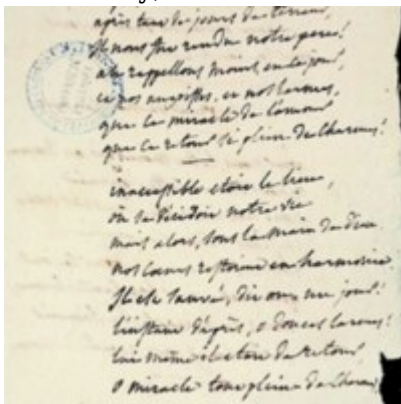 après tant de jours de terreur,
Il nous fut rendu notre pere!
ne rappellons moins, en ce jour,
et nos angoisses, et nos larmes,
que le miracle de l'amour
que ce retour si plein de charmes!
inaccessible etoit le lieu,
où se décidoit notre vie
mais alors, sous la main de Dieu
nos coeurs restoient en harmonie.
Il est sauvé, dit on un jour!
l'instant d'après, o douces larmes!
lui même etoit de retour
O miracle tout plein de charmes